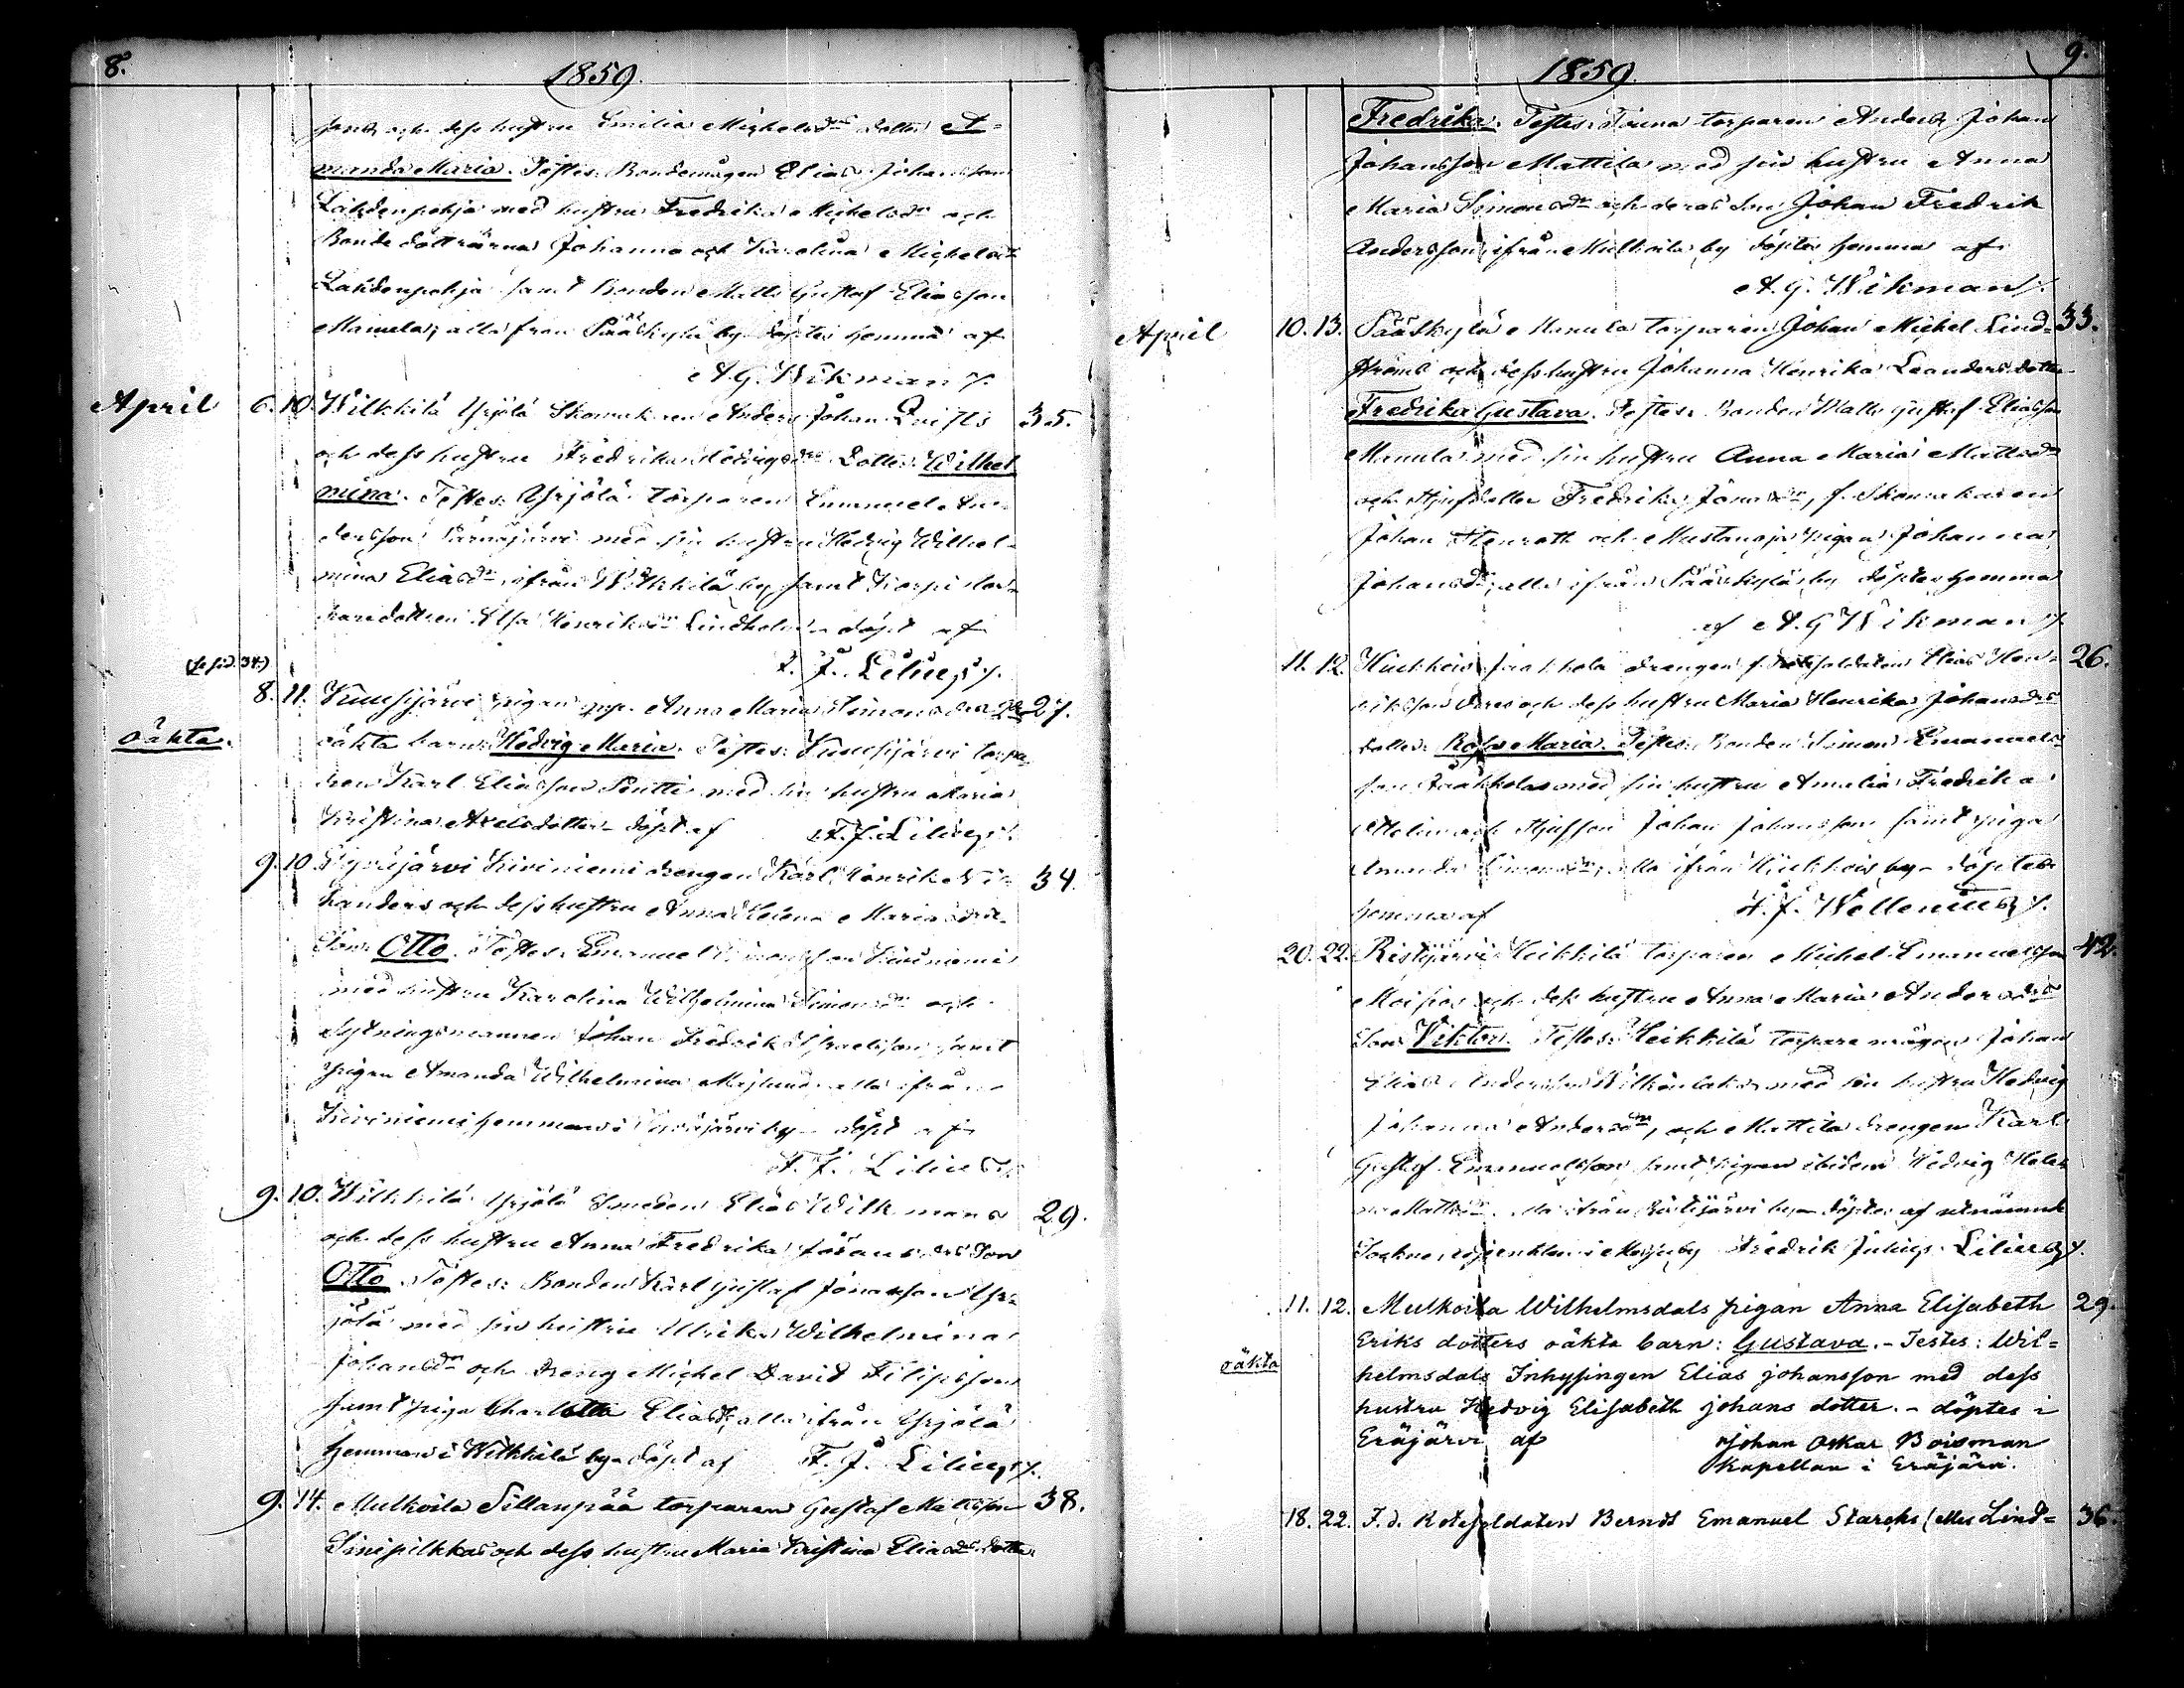 8.
1859.
sons och dess hustru Emilia Michelsdrs dotter A-
manda Maria. Testes: Bondemågen Elias Johansson
Lahdenpohja med hustru Fredrika Michelsdr och
Bonde döttrarna Johanna och Karolina Michelsdr
Lahdenpohja samt Bonden Matts Gustaf Eliasson
Manula, alla från Sääskylä by döptes hemma af
A. G. Wikman /.
April 6. 10. Wilkkilä Yrjölä Skomakaren Anders Johan Qvists 35.
och dess hustru Fredrika Hedvigsdrs dotter: Wilhel
mina. Testes: Yrjölä torparen Emanuel An-
dersson Särnäjärvi med sin hustru Hedvig Wilhel-
mina Eliasdr, ifrån Wilkkilä by samt
dottren Henriksdr Lindholm döpt af
(se sid. 34.) F. J. Lilius /.
8. 11. Kuusjärvi pigan Anna Maria Simonsdrs 27.
oäkta.
oäkta barn: Hedvig Maria. Testes: Kuusjärvi torpa-
ren Karl Eliasson Pentti med sin hustru Maria
Kristina Axelsdotter döpt af F. J. Lilius /.
9. 10. Kiviniemi drengen Karl Henrik 34.
landers och dess hustru Anna Helena Mariasdrs
Son: Otto. Testes: Emanuel Simonsson Kiviniemi
med hustru Karolina Wilhelmina Simonsdr och
Sytningsmannen Johan Fredrik Israelsson samt
pigan Amanda Wilhelmina alla ifrån
Kiviniemi hemman i by döpt af
F. J. Lilius /.
9. 10. Wilkkilä Yrjölä Smeden Elias Wilkmans 29.
och dess hustru Anna Fredrika Johansdrs Son
Otto. Testes: Bonden Karl Gustaf Jonasson Yr-
jölä med sin hustru Ulrika Wilhelmina
Johansdr och dreng Michel David Filipsson
samt piga Charlotta Eliasdr, alla ifrån Yrjölä
hemman i Wilkkilä by döpt af F. J. Lilius /.
9. 14. Mulkoila Sillanpää torparen Gustaf Mattsson 38.
Sinipilkkas och dess hustru Maria Kristina Eliasdrs dotter
9.
1859.
Fredrika. Testes: torparen Anders Johan
Johansson Mattila med sin hustru Anna
Maria Simonsdr och deras Son Johan Fredrik
Andersson, ifrån Mulkoila by döptes hemma af
A. G. Wikman /.
April 10. 13. Sääskylä Manula torparen Johan Michel Lind- 33.
ströms och dess hustru Johanna Henrika Leandersdotters
Fredrika Gustava. Testes: Bonden Matts Gustaf Eliasson
Manula med sin hustru Anna Maria Mattsdr
och styfdotter Fredrika Jonasdr, f. Skomakaren
Johan Stenroth och Mustanoja pigan Johanna
Johansdr, alla ifrån Sääskylä by döptes hemma
af A. G. Wikman /.
11. 12. Hirkkois Jaakkola drengen f. Rotesoldaten Elias Hen- 26.
riksson och dess hustru Maria Henrika Johansdrs
dotter: Rosa Maria. Testes: Bonden Simon Emanuels-
son Jaakkola med sin hustru Amalia Fredrika
och styfson Johan Johansson samt piga
Amanda Simonsdr, alla ifrån by döptes
hemma af F. J. Wellenius /.
20. 22. Ristijärvi Heikkilä torparen Michel Emanuelsson 42.
Moisio och dess hustru Anna Maria Andersdrs
Son: Viktor. Testes: Heikkilä torpare mågen Johan
Elias Andersson med sin hustru Hedvig
Johanna Andersdr, och Mattila drengen Karl
Gustaf Emanuelsson samt pigan ibidem Hedvig Hele-
na Mattsdr, alla ifrån Ristijärvi by döptes af utnämnde
Sockne, i by Fredrik Julius Lilius /.
11. 12. Mulkoila Wilhelmsdals pigan Anna Elisabeth 29.
Eriks dotters oäkta barn: Gustava. - Testes: Wil=
oäkta
helmsdals Inhysingen Elias Johansson med dess
hustru Hedvig Elisabeth Johans dotter. - döptes i
Eräjärvi af Johan Oskar Boisman
Kapellan i Eräjärvi.
18. 22. F. d. Rotesoldaten Bernt Emanuel Starcks (eller Lind= 36.